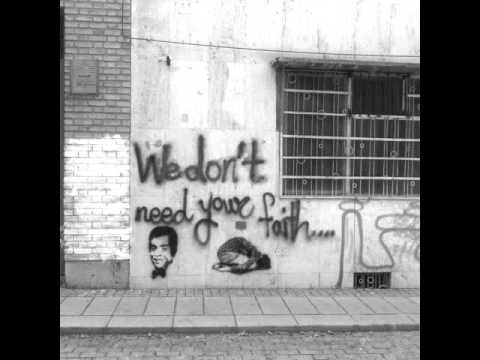 We don't
need your faith....